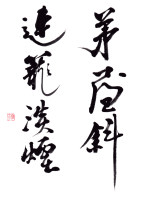 茅屋斜
連籠淡煙